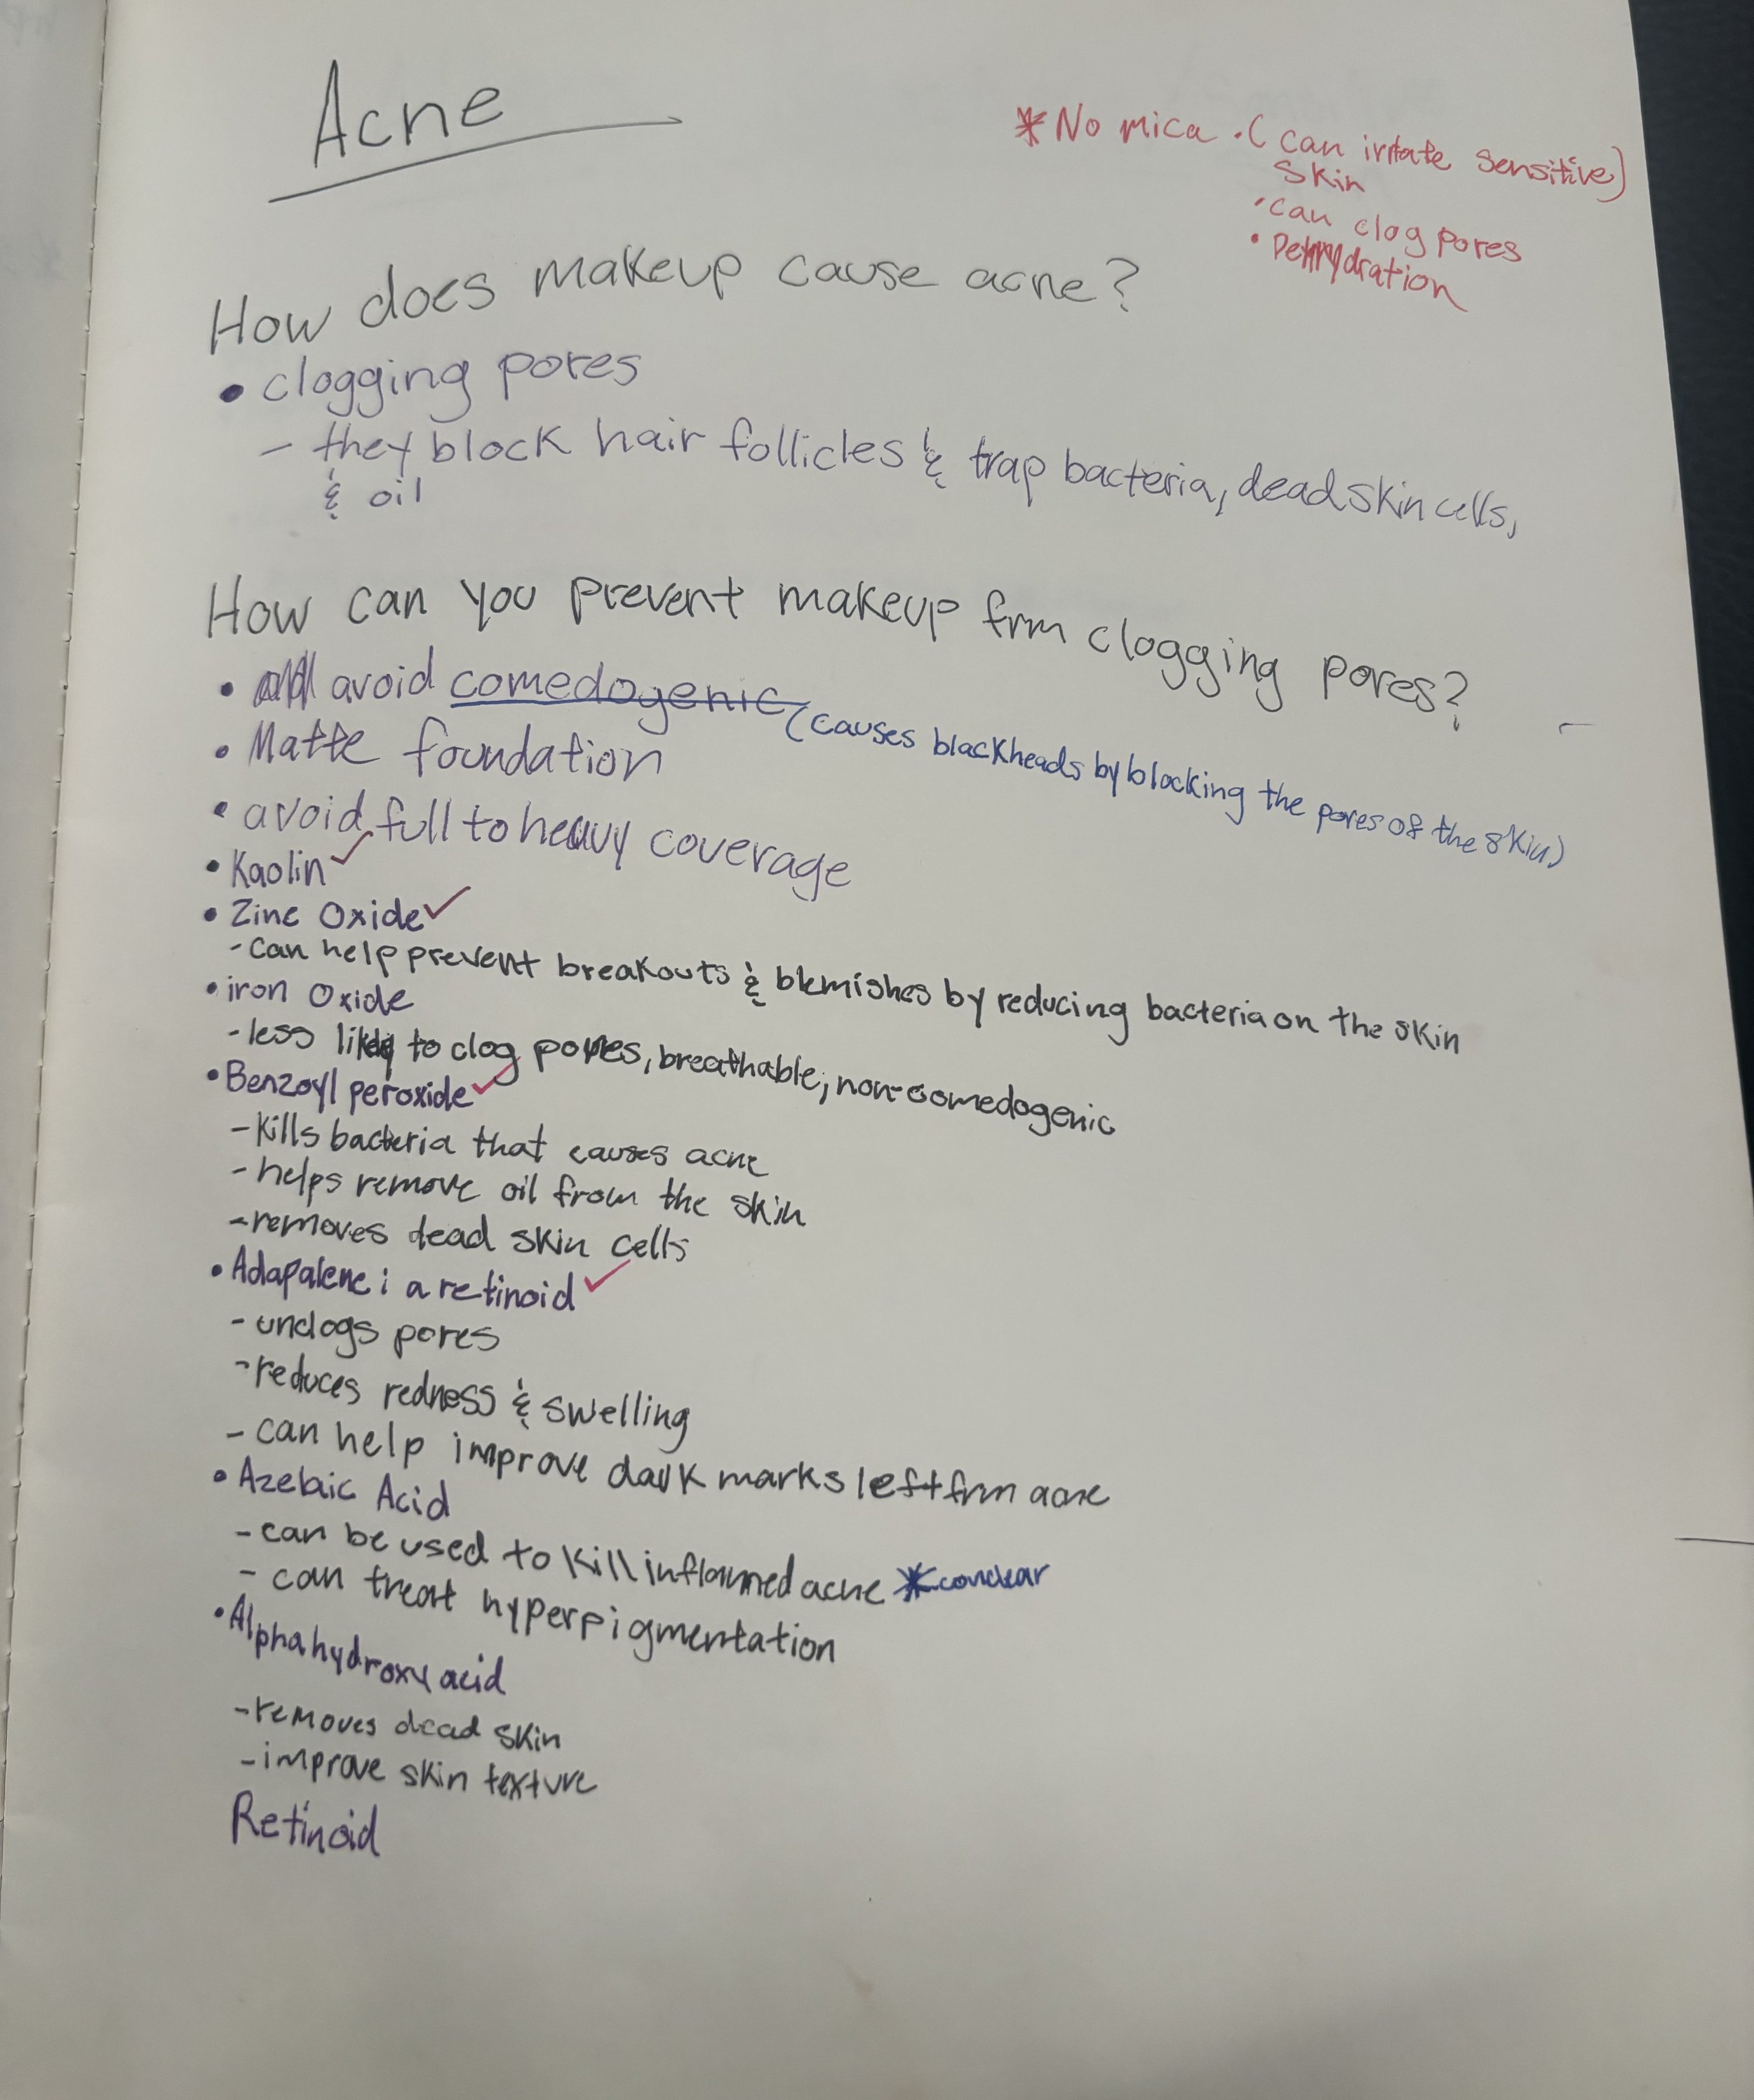 Acne
* No mica • ( can irritate sensitive)
skin
• can clog pores
• Dehydration
How does makeup cause acne?
• clogging pores
– they block hair follicles & trap bacteria, dead skin cells,
& oil
How can you prevent makeup frm clogging pores?
• avoid comedogenic (causes blackheads by blocking the pores of the skin)
• Matte foundation
• avoid full to heavy coverage
• Kaolin ✓
• Zinc Oxide ✓
- can help prevent breakouts & blemishes by reducing bacteria on the skin
• iron Oxide
- less likely to clog pores, breathable, non-comedogenic
• Benzoyl peroxide ✓
- Kills bacteria that causes acne
- helps remove oil from the skin
- removes dead skin cells
• Adapalene: a retinoid ✓
- unclogs pores
- reduces redness & swelling
- can help improve dark marks left frm acne
• Azelaic Acid
- can be used to kill inflammed acne * can clear
- can treat hyperpigmentation
• Alpha hydroxy acid
- removes dead skin
- improve skin texture
Retinoid